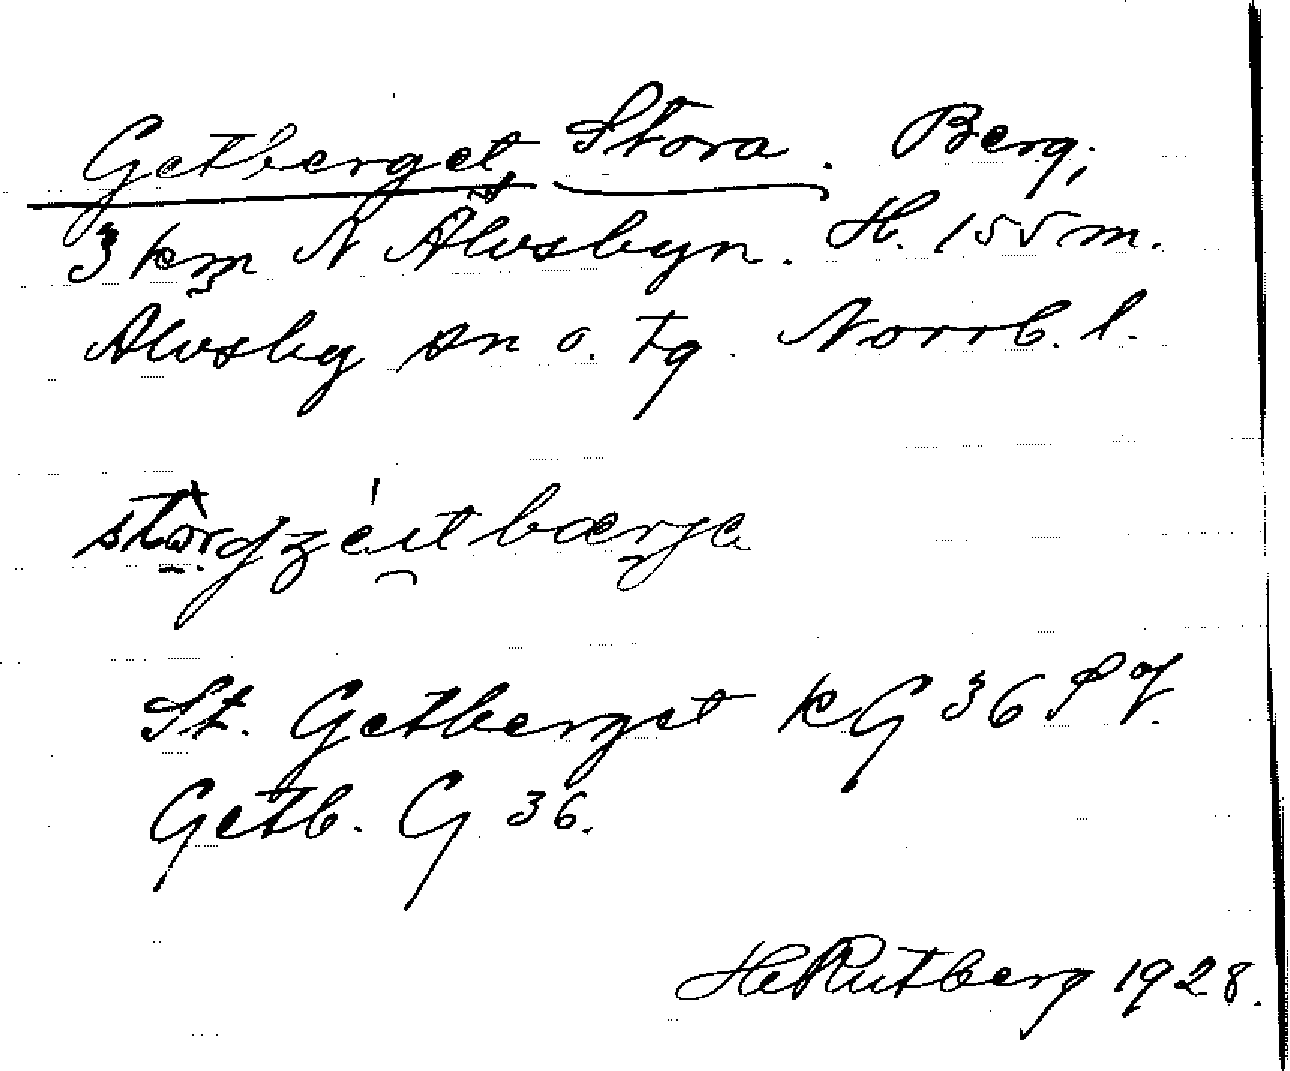 Getberget, Stora. Berg;
3 km N Älvsbyn. H. 155 m.
Älvsby sn o. tg. Norrb. l.
St. Getberget kG 36
Getb. G 36.
HRutberg 1928.